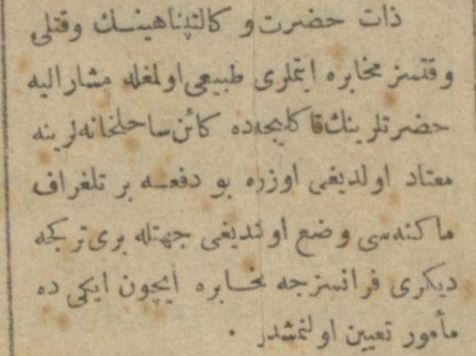 ذات حضرت و كالتپناهینك وقتلی
وقتسز مخابره ایتملری طبیعی اولمغله مشارالیه
حضرتلرینك قاكلیجه‌ده كائن ساحلخانه‌لرینه
معتاد اولدیغی اوزره بو دفعه بر تلغراف
ماكنه‌سی وضع اولندیغی جهتله بری تركجه
دیكری فرانسزجه مخابره ایچون ایكی ده
مأمور تعیین اولنمشدر ٠